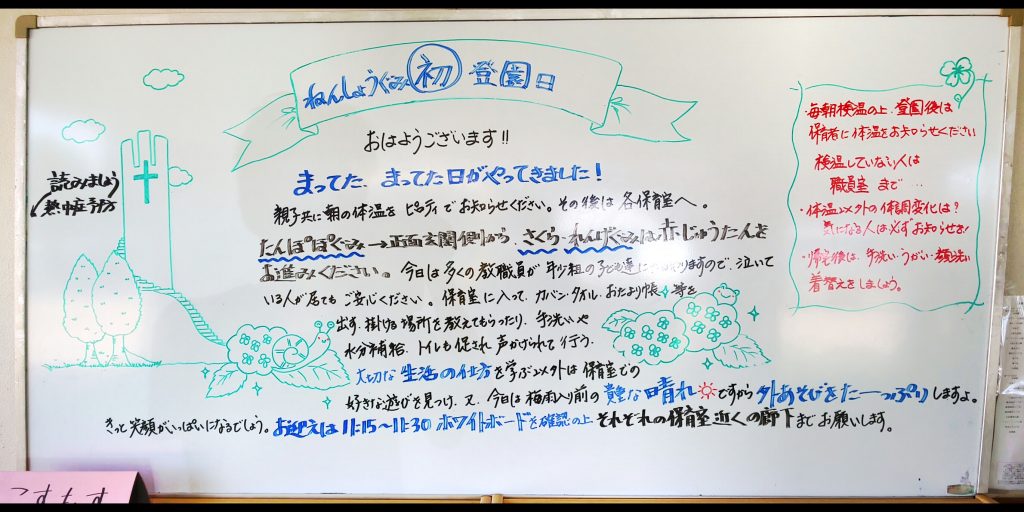 ねんしょうぐみ 初 登園日
おはようございます!!
まってた、まってた日がやってきました！
親子共に朝の体温を ピロティ でお知らせください。その後は 各保育室へ。
たんぽぽぐみ→正面玄関側から、さくら・れんげぐみは赤じゅうたんを
お進みください。今日は多くの教職員が 年少組の子ども達に ので、泣いて
いる人が居ても ご安心ください。保育室に入って、カバン・タオル・おたより帳 等を
出す、掛ける場所を教えてもらったり、手洗いや
水分補給、トイレも促され 声がけられて 行う、
大切な 生活の仕方を学ぶコメトは 保育室での
好きな遊びを見つけ、又、今日は 梅雨入り前の 貴重な晴れ ですから 外あそびをたーーっぷりしますよ。
きっと笑顔がいっぱいになるでしょう。お迎えは 11:15～11:30 ホワイトボードを確認の上 それぞれの保育室近くの廊下までお願いします。
読みましょう
熱中症予防
・毎朝検温の上、登園後は
保育者に体温をお知らせください
検温していない人は
職員室 まで…
・体温以外の体調変化は？
気になる人は必ずお知らせを！
・帰宅後は、手洗い・うがい・顔洗い
着替えをしましょう。
こすもす